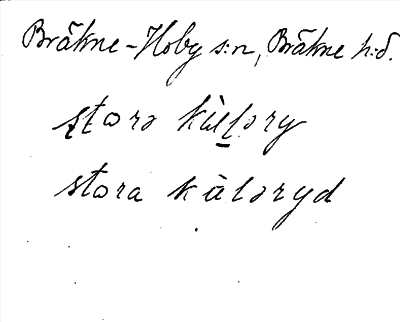 Bräkne-Hoby s:n, Bräkne h:d.
stora kùl̠əry
stora kùləryd